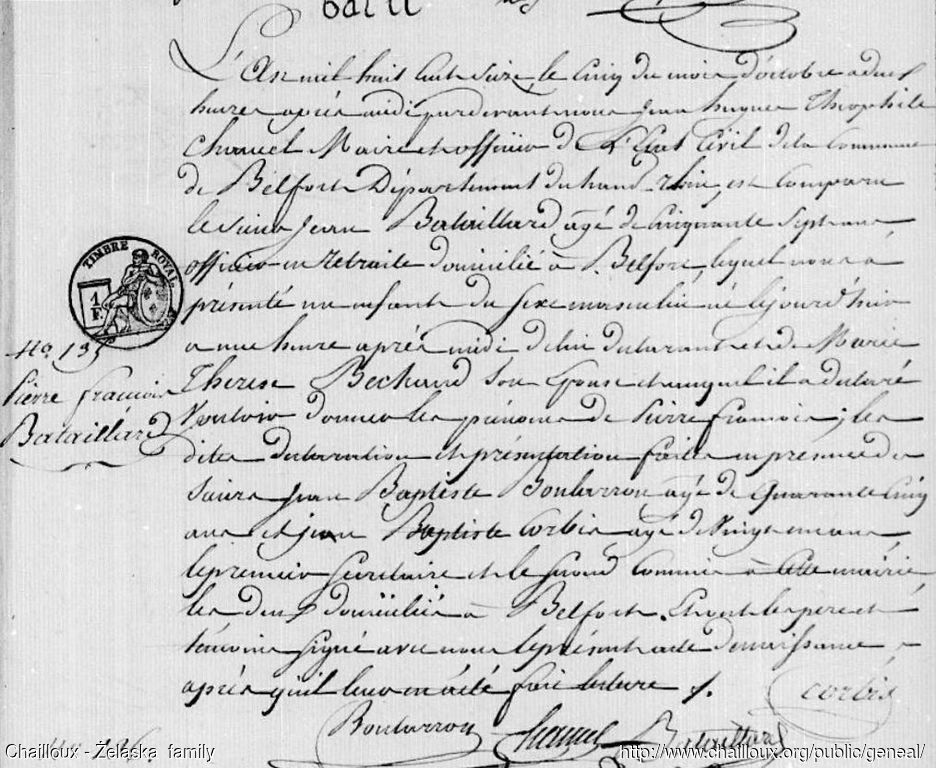 L'An mil huit Cent Seize le Cinq du mois d'octobre a deux
heures après midi pardevant nous Jean hugues Theophile
Chauuel Maire et officier de L'Etat Civil de la Commune
de Belfort Département du haut-rhin, est Comparu
le Sieur Jean Bataillard agé de Cinquante Sept ans
officier en Retraite domicilié à Belfort, lequel nous a
présenté un enfant du Sexe masculin né le jourd'hui
a une heure après midi de lui déclarant et de Marie
Therese Bechaud Son Epouse et auquel il a déclaré
Vouloir donner les prénoms de Pierre francois; les
dites declaration et présentation faites en présence des
Sieurs Jean Baptiste Boularron agé de Quarante Cinq
ans et jean Baptiste Corbis agé de Vingt un ans
le premier Secretaire et le Second Commis à cette mairie,
les deux domiciliés à Belfort. Et ont les pere et
témoins Signé avec nous le présent acte de naissance
après qu'il leur en a été fait lecture ./.
TIMBRE ROYAL
1 F.
No. 135
Pierre francois
Bataillard
corbis
Boularron Chauuel Bataillard
Chailloux - Żelaska family
http://www.chailloux.org/public/geneal/